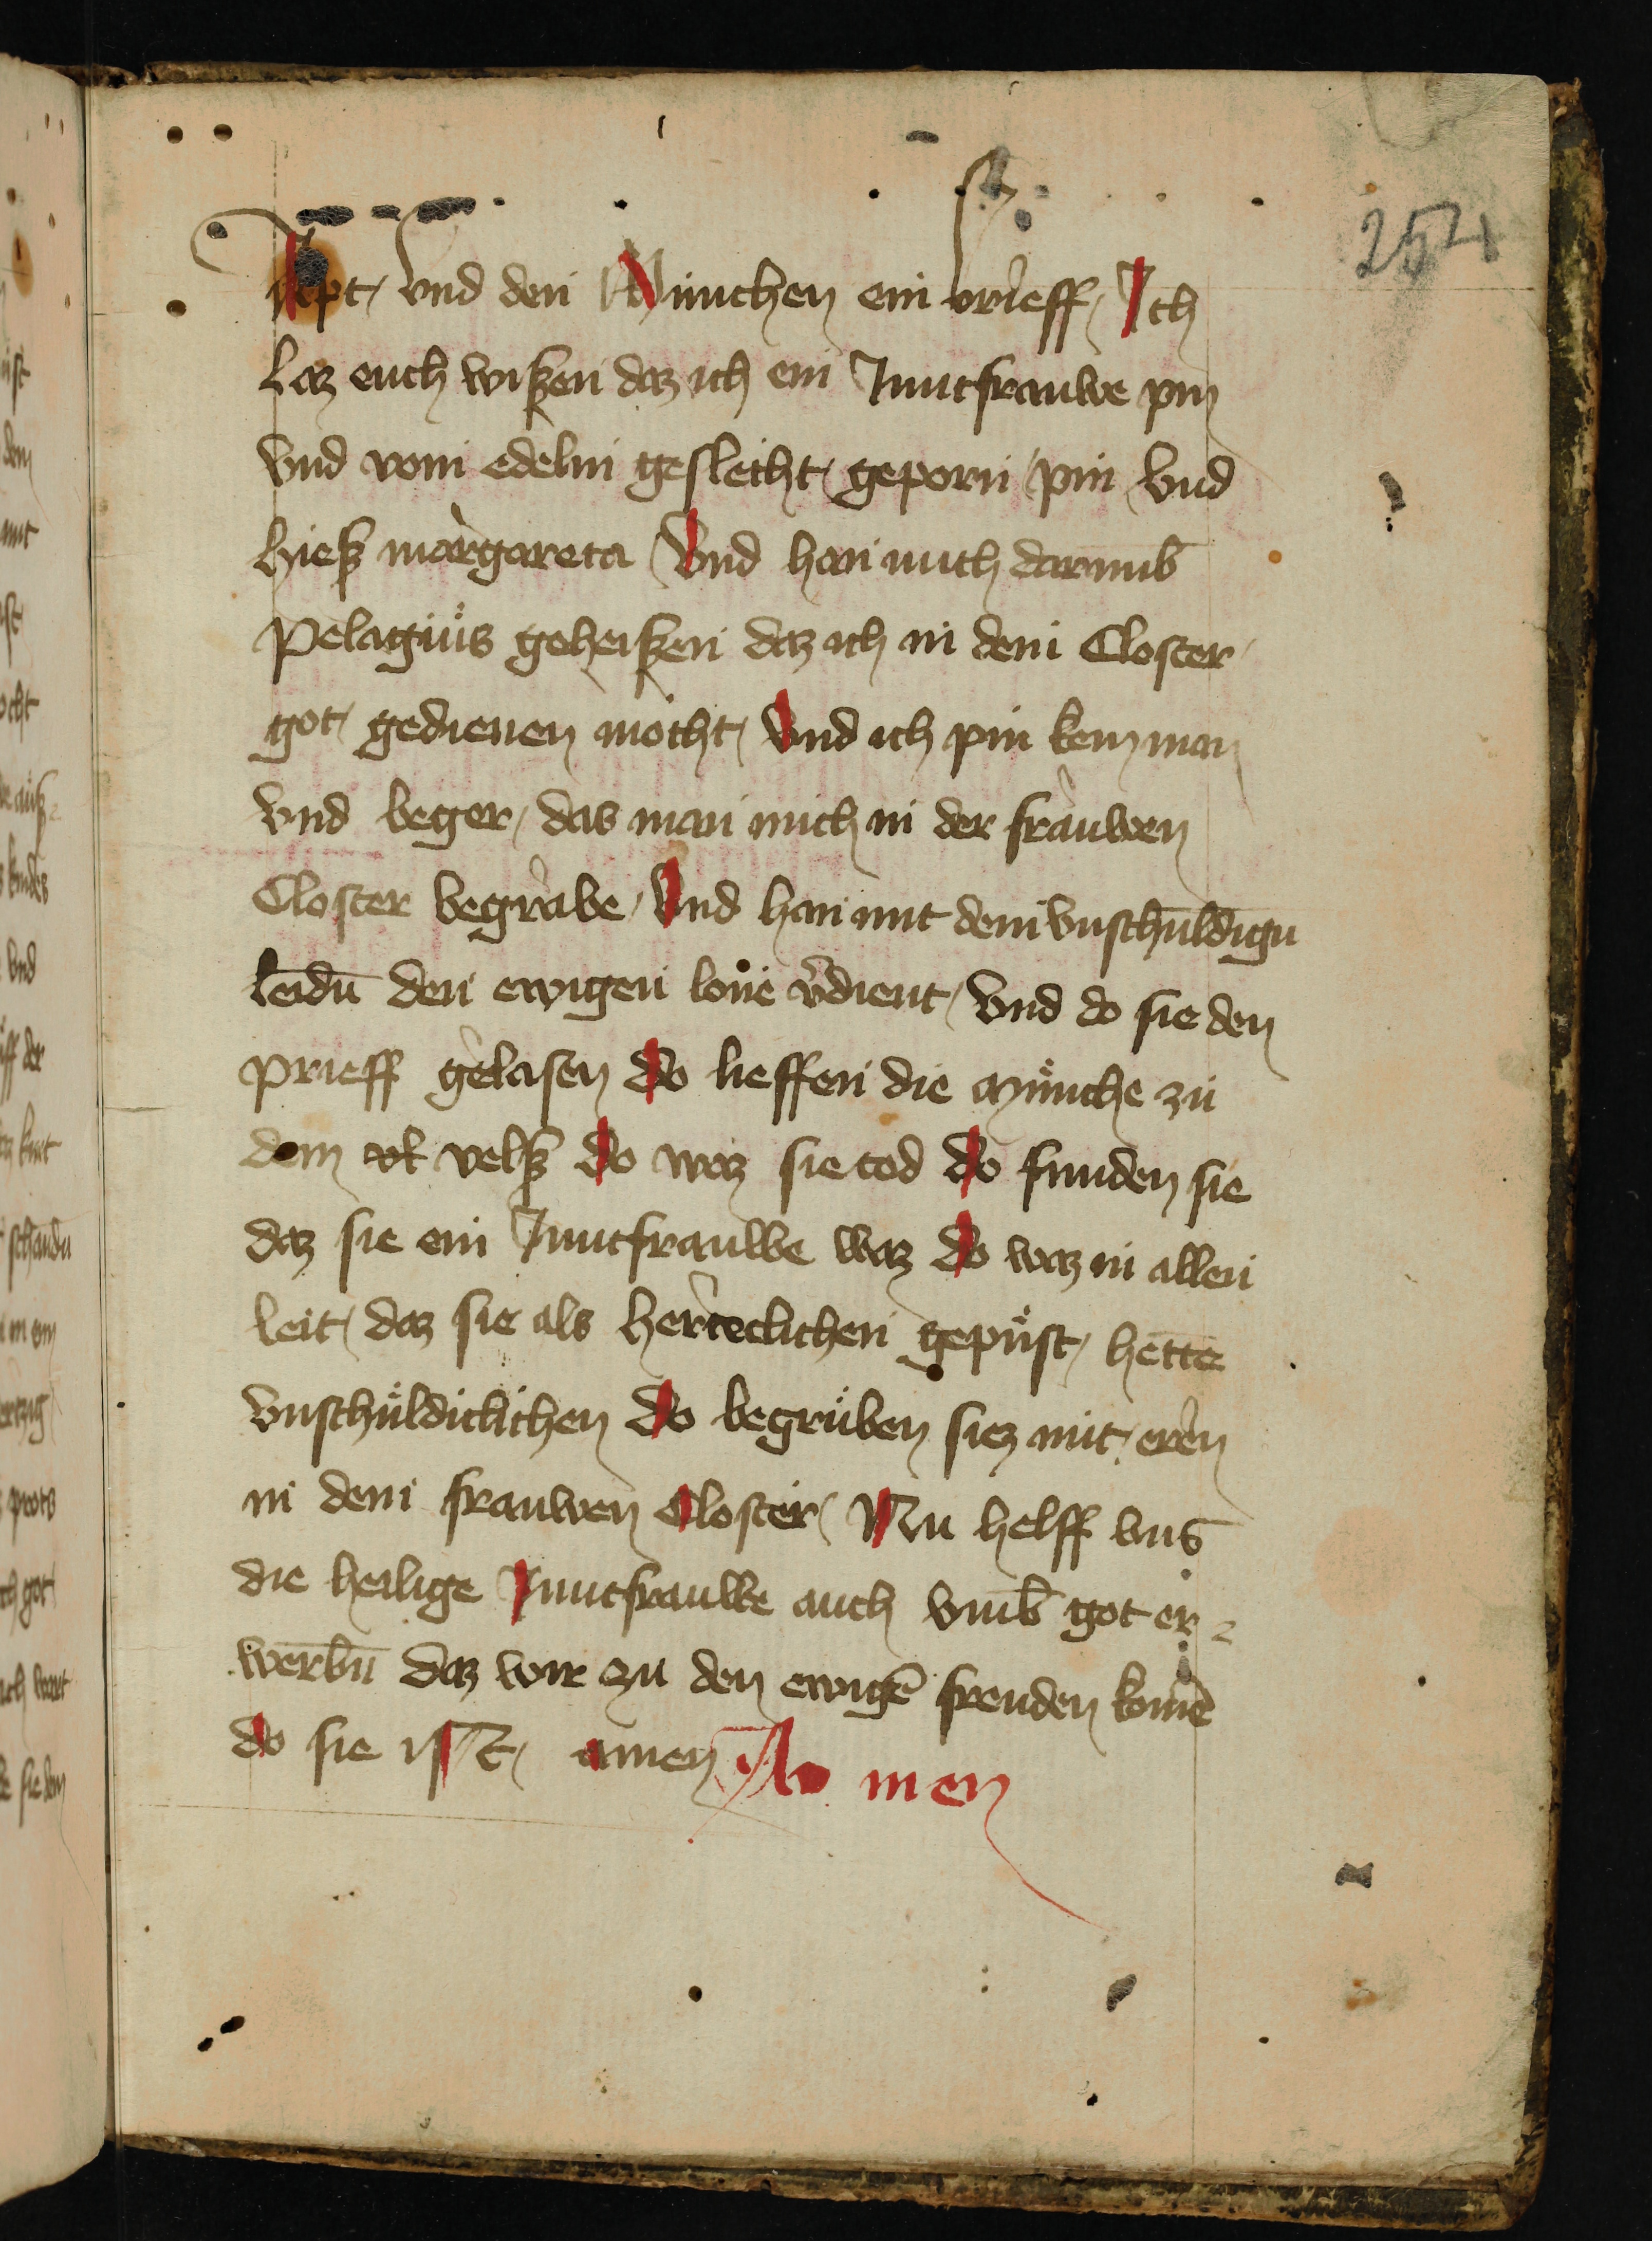 254
Apt vnd den München ein brieff Ich
laz euch wißen daz ich ein Junctfrauwe pin
vnd vom edelm geslecht geporn pin vnd
hieß margareta Vnd han mich darumb
Pelagiůs geheißen daz ich in dem Closter
got gedienen mocht Vnd ich pin kein man
vnd beger das man mich in der frauwen
Closter begrabe Vnd han mit dem vnschůldign
leidū den ewigen lone v̄dient Vnd do sie den
prieff gelasen do lieffen die Můnche zu
dem velß do waz sie tod do funden sie
daz sie ein Junctfrauwe waz do waz in allen
leit daz sie als herteclichen gepůst hette
vnschůldiclichen do begrůben siez mit eren
in dem frauwen Closter Nu helff vns
die heilige Junctfrauwe auch vmb got er
werbū daz wir zu den ewigē freuden komē
do sie ist amen Amen